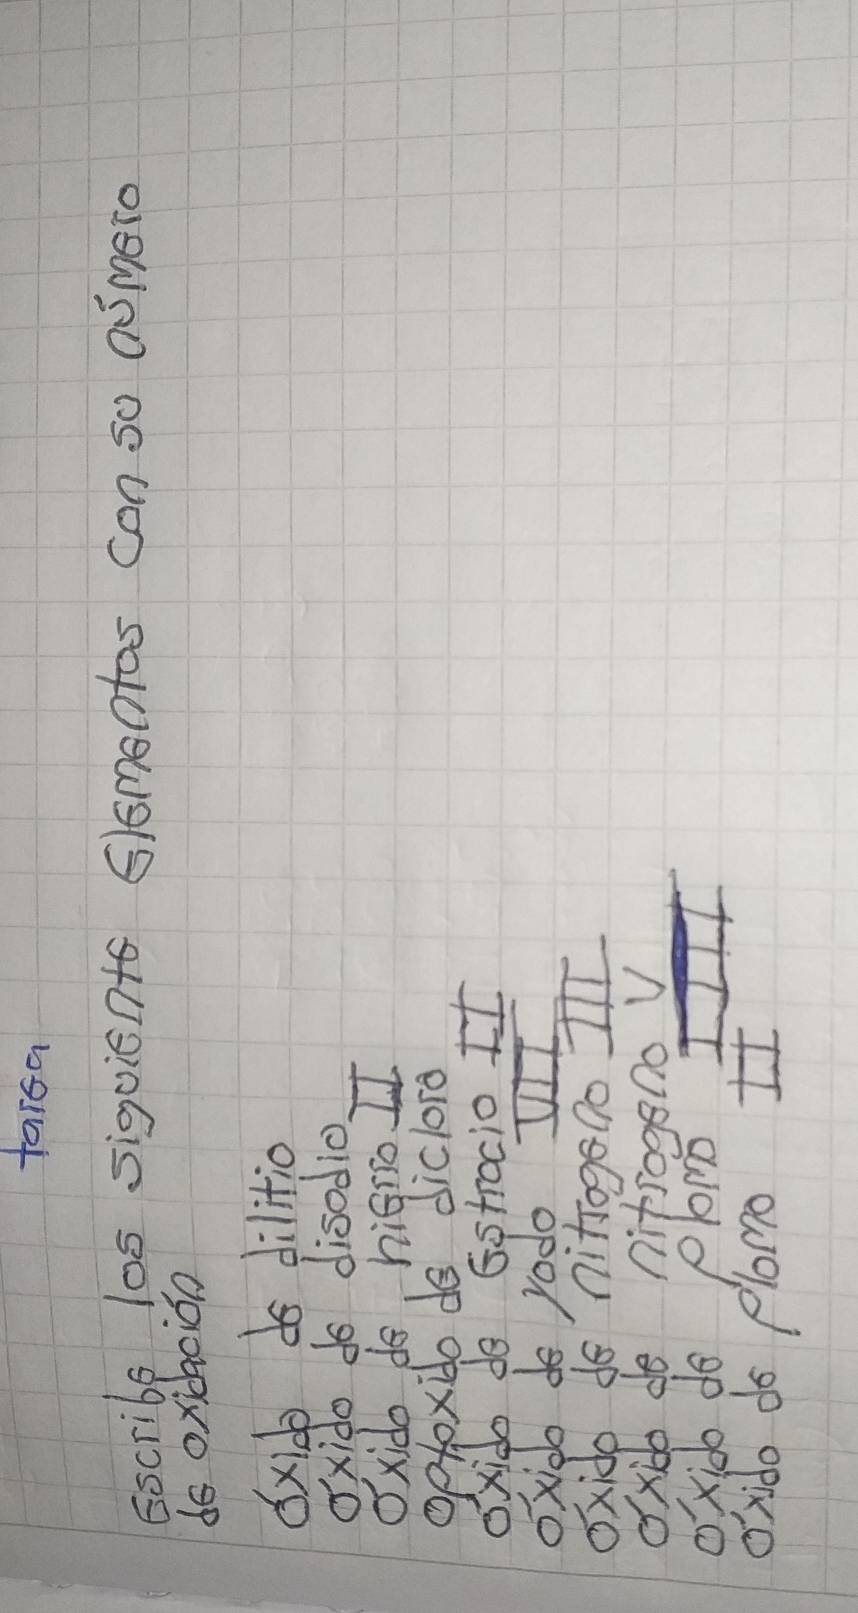 tarea
Escribe los siguiente elementos con su número
de oxidación
óxido de dilitio
óxido de disodio
óxido de hierro II
optoxido de dicloro
óxido de Estrocio II
óxido de yodo VII
óxido de nitrogeno III
óxido de nitrogeno V
óxido de plomo
óxido de plomo II